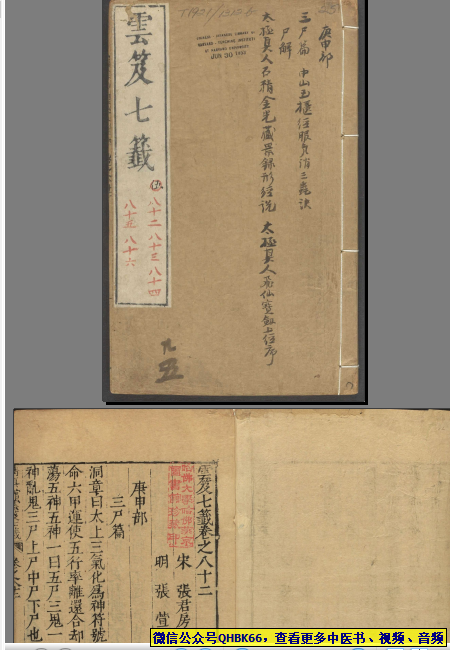 雲笈七籤
八十二 八十三 八十四
八十五 八十六
庚申部
三尸篇 中山玉櫃經服氣消三蟲訣
尸解
太極真人石精金光藏景錄形經說 太極真人飛仙寶劍上經序
JUN 30 1933
九
五
雲笈七籤卷之八十二
宋 張君房
明 張萱
庚申部
三尸篇
洞章曰太上三氣化為神符號
命六甲運使五行率離還合却
蕩五神五神一曰五尸三鬼一
神亂鬼三尸上尸中尸下尸也
微信公众号QHBK66，查看更多中医书、视频、音频